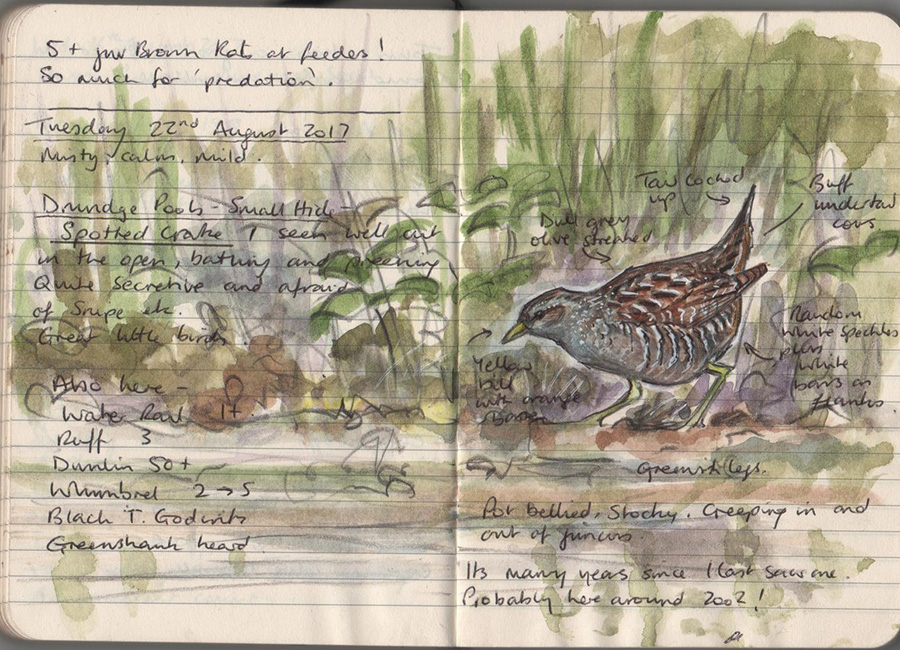 5+ juv Brown Rats at feeders!
So much for 'predation'.
Tuesday 22nd August 2017
Misty, calm, mild.
Drundge Pools - Small Hide -
Spotted Crake 1 seen well out
in the open, bathing and preening
Quite secretive and afraid
of Snipe etc.
Great little birds.
Also here -
Water Rail 1+
Ruff 3
Dunlin 50+
Whimbrel 2 → 5
Black T. Godwits
Greenshank heard
Tail cocked
up
Buff
undertail
covs
Dull grey
olive streaked
Yellow
bill
with orange
base
Random
white speckles
plus
white
bars on
flanks
Greenish legs.
Pot bellied, Stocky. Creeping in and
out of juncus.
Its many years since I last saw one.
Probably here around 2002!